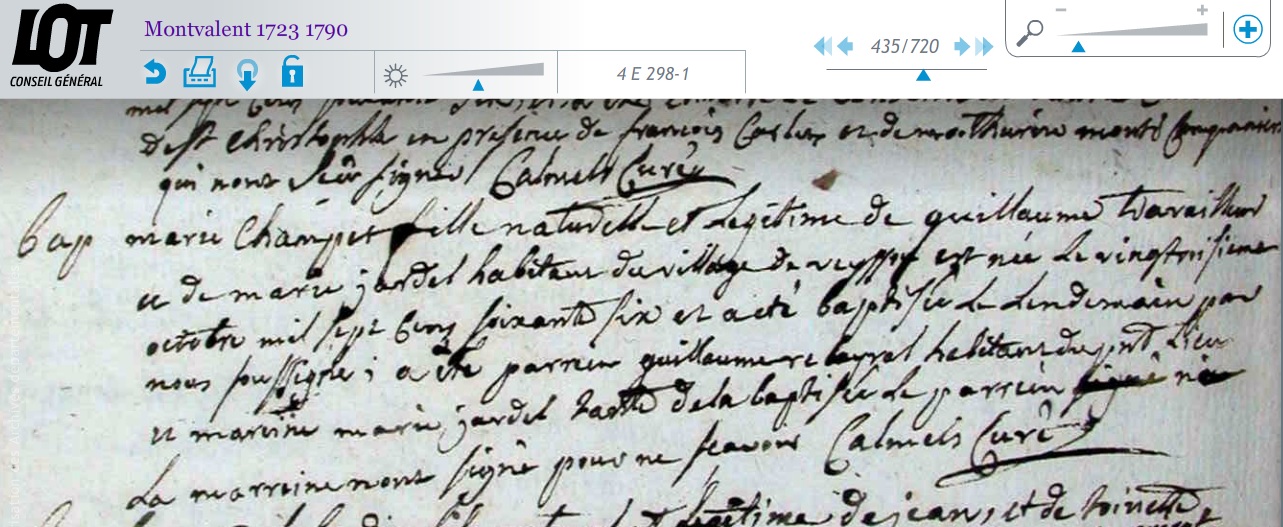 LOT
CONSEIL GÉNÉRAL
Montvalent 1723 1790
4 E 298-1
435/720
mil sept cens
de st Christophle en presence de francois et de mathurin
qui nont sceu signer Calmels Curé
bap marie Champet fille naturelle et legitime de guillaume travailleur
et de marie jardel habitans du village de veyssou est née le vingtroisieme
octobre mil sept cens soixante six et a eté baptisée le lendemain par
nous soussigné; a été parrein guillaume habitant du pnt lieu
et marreine marie jardel tante de la baptisée le parrein signé ni
La marreine nont signé pour ne scavoir Calmels Curé
legitime de jean, et de toinette